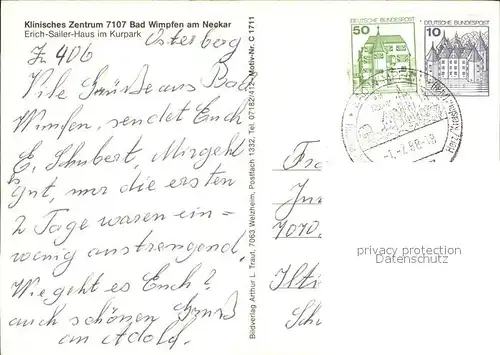 Klinisches Zentrum 7107 Bad Wimpfen am Neckar
Erich-Sailer-Haus im Kurpark
Osterberg
Z 406
Vile Grüße aus Bad
Wimfen, sendet Euch
E. Schubert, Mirgeht
es gut, nur die ersten
2 Tage waren ein=
wenig anstrengend,
Wie geht es Euch?
auch schönen Gruß
an Adold.
Bildverlag Arthur L. Traut, 7063 Welzheim, Postfach 1332, Tel. 07182/412 Motiv-Nr. C 1711
50
DEUTSCHE BUNDESPOST
10
DEUTSCHE BUNDESPOST
-1.-7.88-18
7107
Fra
7070
Sch
privacy protection
Datenschutz